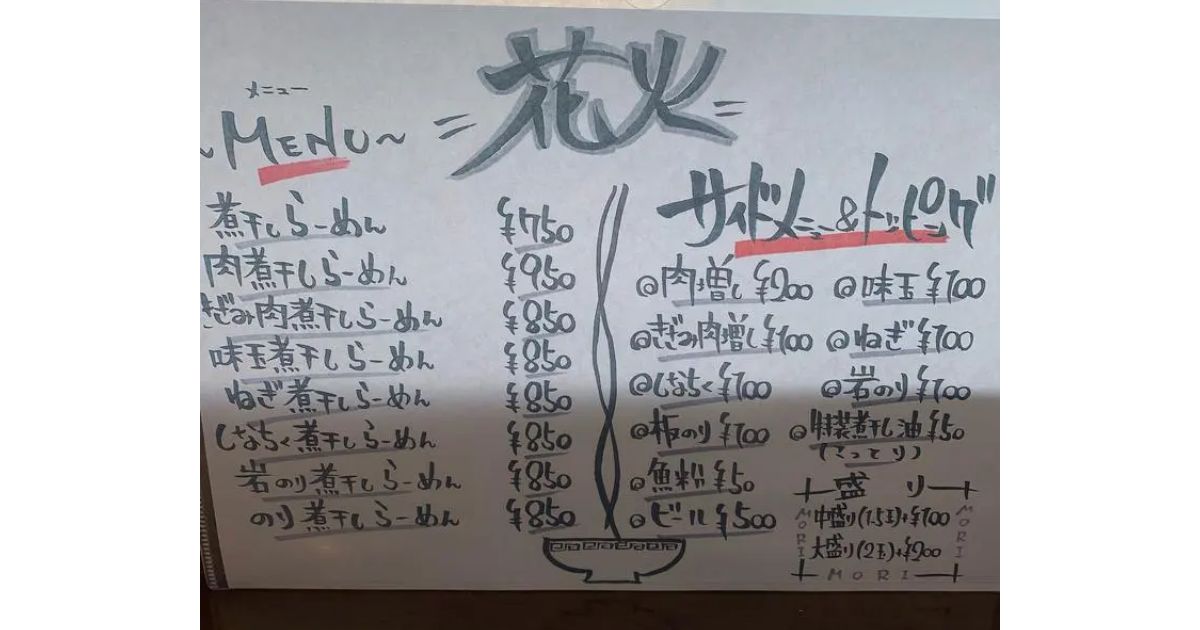 花火
メニュー
~MENU~
煮干しらーめん ¥750
肉煮干しらーめん ¥950
きざみ肉煮干しらーめん ¥850
味玉煮干しらーめん ¥850
ねぎ煮干しらーめん ¥850
しなちく煮干しらーめん ¥850
岩のり煮干しらーめん ¥850
のり煮干しらーめん ¥850
サイドメニュー&トッピング
◎肉増し ¥200 ◎味玉 ¥100
◎きざみ肉増し ¥100 ◎ねぎ ¥100
◎しなちく ¥100 ◎岩のり ¥100
◎板のり ¥100 ◎特製煮干し油 ¥50
(こってり)
◎魚粉 ¥50
◎ビール ¥500
盛り
中盛り(1.5玉)+¥100
大盛り(2玉)+¥200
MORI
MORI
MORI